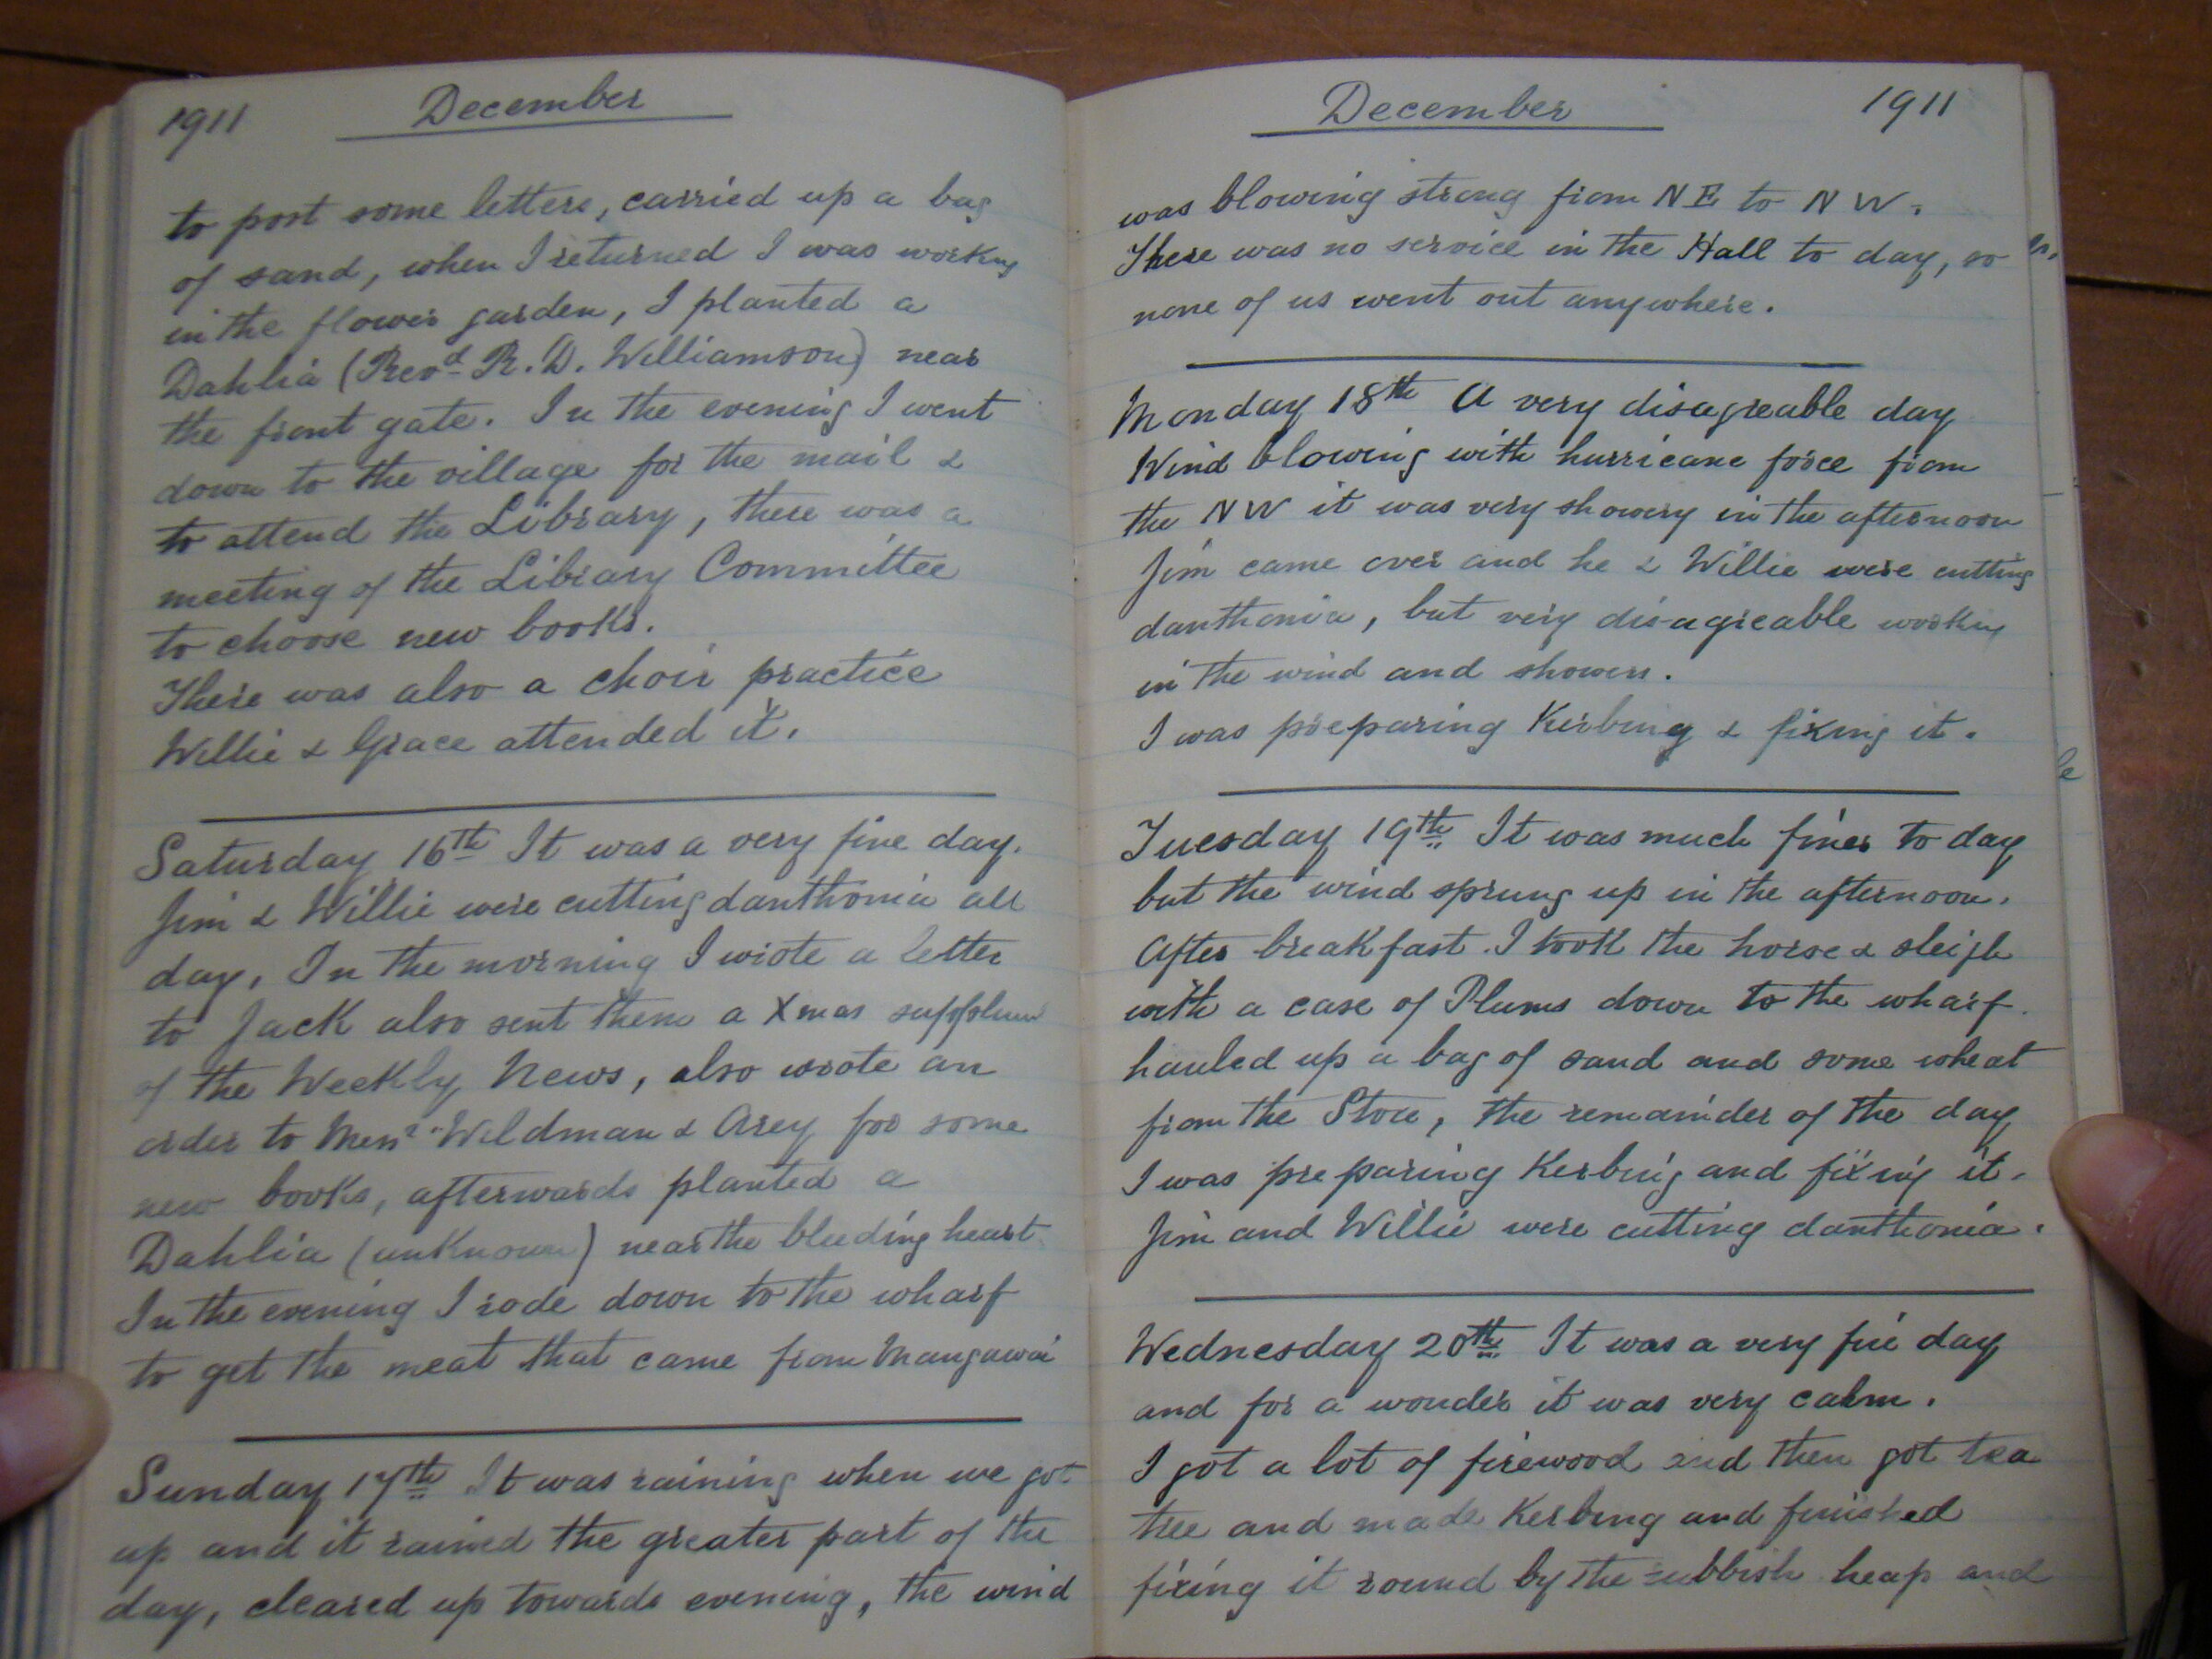 1911 December
to post some letters, carried up a bag
of sand, when I returned I was working
in the flower garden, I planted a
Dahlia (Revd. R. D. Williamson) near
the front gate. In the evening I went
down to the village for the mail &
to attend the Library, there was a
meeting of the Library Committee
to choose new books.
There was also a choir practice
Willie & Grace attended it.
Saturday 16th It was a very fine day.
Jim & Willie were cutting danthonia all
day. In the morning I wrote a letter
to Jack also sent them a Xmas
of the Weekly News, also wrote an
order to Messrs Wildman & Arey for some
new books, afterwards planted a
Dahlia (unknown) near the bleeding heart.
In the evening I rode down to the wharf
to get the meat that came from Mangawai
Sunday 17th It was raining when we got
up and it rained the greater part of the
day, cleared up towards evening, the wind
December 1911
was blowing strong from NE to NW.
There was no service in the Hall to day, so
none of us went out anywhere.
Monday 18th A very disagreable day
Wind blowing with hurricane force from
the NW it was very showery in the afternoon
Jim came over and he & Willie were cutting
danthonia, but very disagreable working
in the wind and showers.
I was preparing Kerbing & fixing it.
Tuesday 19th It was much finer to day
but the wind sprung up in the afternoon.
After breakfast I took the horse & sleigh
with a case of Plums down to the wharf.
hauled up a bag of sand and some wheat
from the Store, the remainder of the day
I was preparing Kerbing and fixing it.
Jim and Willie were cutting danthonia.
Wednesday 20th It was a very fine day
and for a wonder it was very calm.
I got a lot of firewood and then got tea
tree and made Kerbing and finished
fixing it round by the rubbish heap and